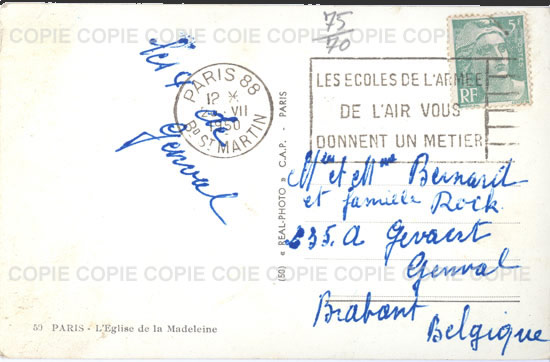 75
70
5F
RF
PARIS 88
12 *
VII
1950
Bd St MARTIN
LES ECOLES DE L'ARMEE
DE L'AIR VOUS
DONNENT UN METIER
Les 4 de
Genval
Mr et Mme Bernard
et famille Rock
235. A Gevaert
Genval
Brabant
Belgique
(80) « REAL-PHOTO » C.A.P. - PARIS
59 PARIS - L'Eglise de la Madeleine
COPIE COPIE COPIE COPIE COPIE COPIE COPIE COPIE